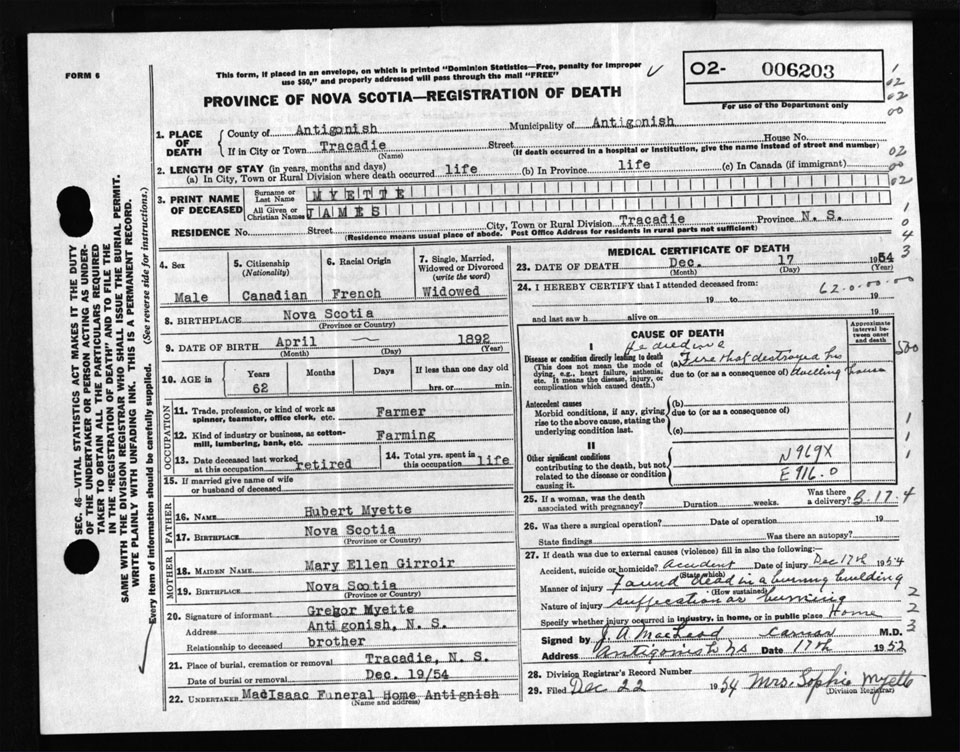 FORM 6
This form, if placed in an envelope, on which is printed "Dominion Statistics—Free, penalty for improper
use $50," and properly addressed will pass through the mail "FREE"
02- 006203
For use of the Department only
PROVINCE OF NOVA SCOTIA—REGISTRATION OF DEATH
1. PLACE OF DEATH County of Antigonish Municipality of Antigonish
If in City or Town Tracadie Street House No.
(Name) (If death occurred in a hospital or institution, give the name instead of street and number)
2. LENGTH OF STAY (in years, months and days)
(a) In City, Town or Rural Division where death occurred life (b) In Province life (c) In Canada (if immigrant)
3. PRINT NAME OF DECEASED
Surname or Last Name MYETTE
All Given or Christian Names JAMES
RESIDENCE No. Street City, Town or Rural Division Tracadie Province N. S.
(Residence means usual place of abode. Post Office Address for residents in rural parts not sufficient)
4. Sex Male
5. Citizenship (Nationality) Canadian
6. Racial Origin French
7. Single, Married, Widowed or Divorced (write the word) Widowed
8. BIRTHPLACE Nova Scotia
(Province or Country)
9. DATE OF BIRTH April — 1892
(Month) (Day) (Year)
10. AGE in Years Months Days If less than one day old
62 hrs. or min.
OCCUPATION
11. Trade, profession, or kind of work as
spinner, teamster, office clerk, etc. Farmer
12. Kind of industry or business, as cotton-
mill, lumbering, bank, etc. Farming
13. Date deceased last worked
at this occupation retired
14. Total yrs. spent in
this occupation life
15. If married give name of wife
or husband of deceased
FATHER
16. NAME Hubert Myette
17. BIRTHPLACE Nova Scotia
(Province or Country)
MOTHER
18. MAIDEN NAME Mary Ellen Girroir
19. BIRTHPLACE Nova Scotia
(Province or Country)
20. Signature of informant Gregor Myette
Address Antigonish, N. S.
Relationship to deceased brother
21. Place of burial, cremation or removal Tracadie, N. S.
Date of burial or removal Dec. 19/54
22. UNDERTAKER MacIsaac Funeral Home Antignish
(Name and address)
MEDICAL CERTIFICATE OF DEATH
23. DATE OF DEATH Dec. 17 1954
(Month) (Day) (Year)
24. I HEREBY CERTIFY that I attended deceased from:
62-0-00-00
19 to 19
and last saw h alive on 19
CAUSE OF DEATH
Approximate interval between onset and death
I
He died in a
Disease or condition directly leading to death (a) Fire that destroyed his
(This does not mean the mode of
dying, e.g., heart failure, asthenia,
etc. It means the disease, injury, or
complication which caused death.)
due to (or as a consequence of) dwelling house
Antecedent causes
Morbid conditions, if any, giving
rise to the above cause, stating the
underlying condition last.
(b)
due to (or as a consequence of)
(c)
II
Other significant conditions
contributing to the death, but not
related to the disease or condition
causing it.
N969X
E916.0
25. If a woman, was the death
associated with pregnancy? Duration weeks. Was there a delivery? B-17-4
26. Was there a surgical operation? Date of operation 19
State findings Was there an autopsy?
27. If death was due to external causes (violence) fill in also the following:—
Accident, suicide or homicide? Accident Date of injury Dec 17th 1954
(State which)
Manner of injury Found dead in a burning building
(How sustained)
Nature of injury suffocation or burning
Specify whether injury occurred in industry, in home, or in public place Home
Signed by J. A MacLeod M.D.
Address Antigonish NS Date 17th 1952
28. Division Registrar's Record Number
29. Filed Dec 22 1954 Mrs. Sophie Myette
(Division Registrar)
SEC. 46—VITAL STATISTICS ACT MAKES IT THE DUTY
OF THE UNDERTAKER OR PERSON ACTING AS UNDER-
TAKER TO OBTAIN ALL THE PARTICULARS REQUIRED
IN THE "REGISTRATION OF DEATH" AND TO FILE THE
SAME WITH THE DIVISION REGISTRAR WHO SHALL ISSUE THE BURIAL PERMIT.
WRITE PLAINLY WITH UNFADING INK. THIS IS A PERMANENT RECORD.
Every item of information should be carefully supplied. (See reverse side for instructions.)
1
02
02
00
02
00
02
1
0
4
3
500
1
1
1
2
2
3